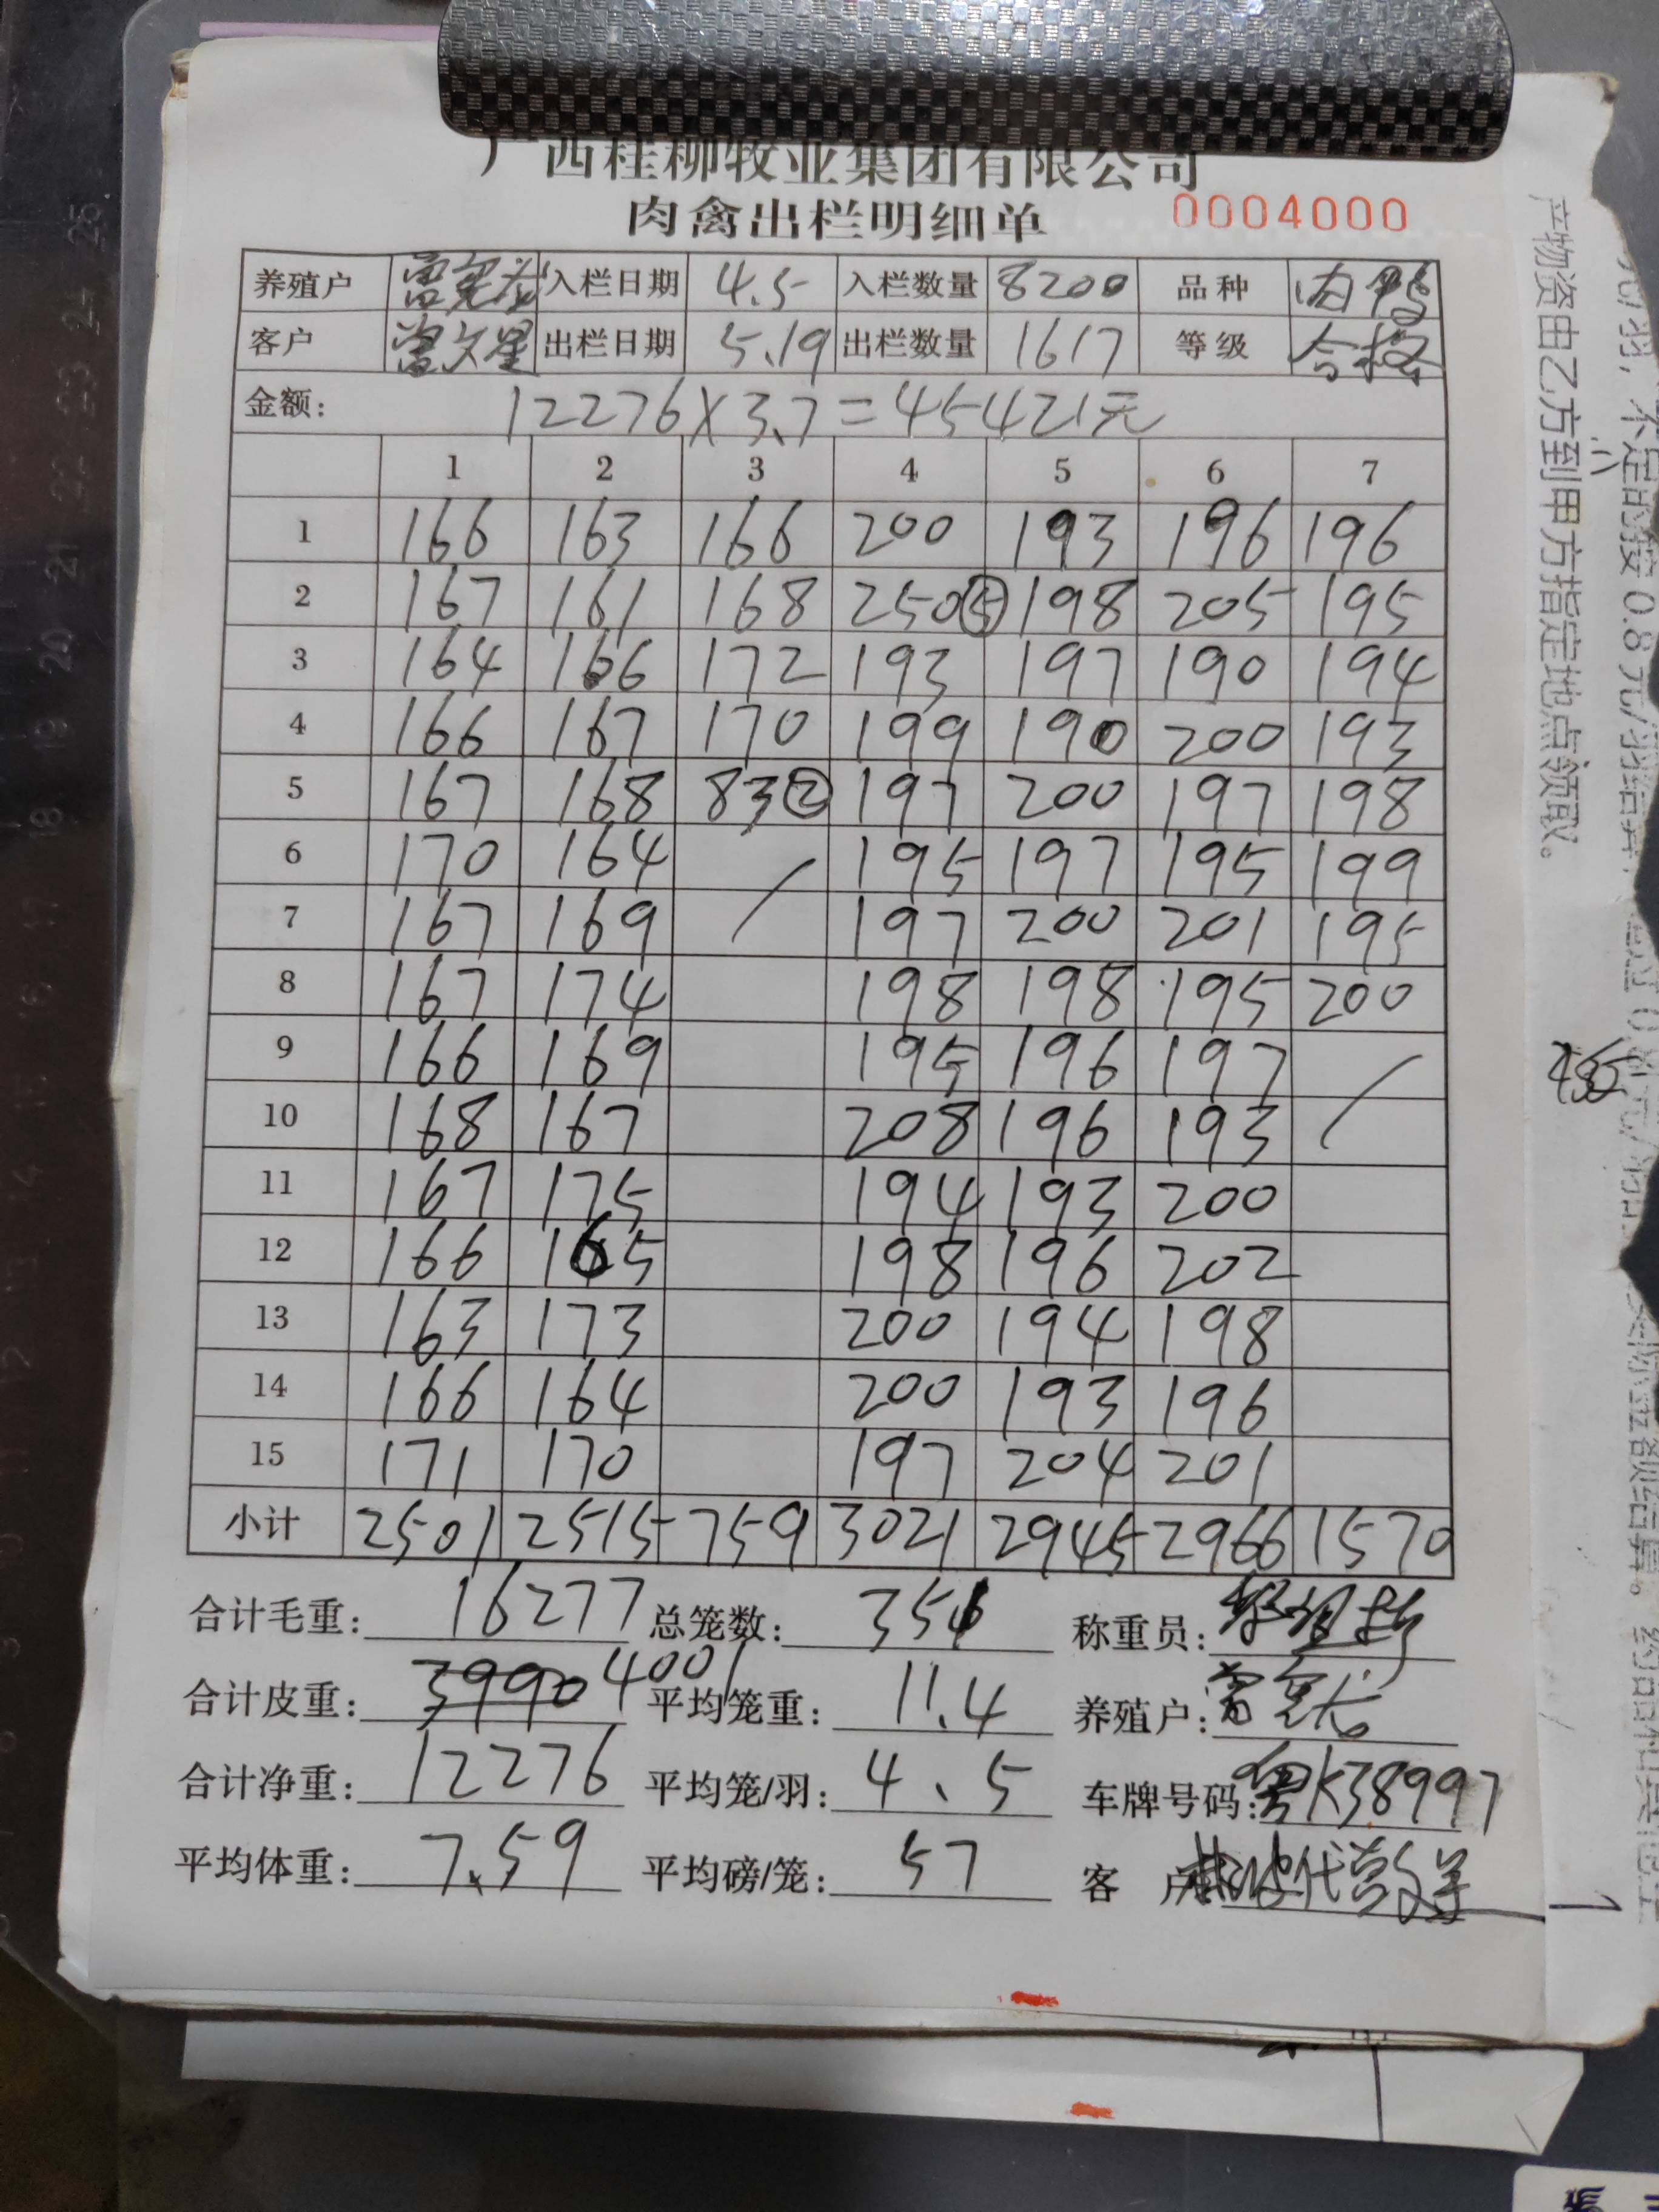 广西桂柳牧业集团有限公司
肉禽出栏明细单 0004000
养殖户 入栏日期 4.5 入栏数量 8200 品种 肉鸭
客户 曾文星 出栏日期 5.19 出栏数量 1617 等级 合格
金额: 12276×3.7=45421元
1 2 3 4 5 6 7
1 166 163 166 200 193 196 196
2 167 161 168 250⑤ 198 205 195
3 164 166 172 193 197 190 194
4 166 167 170 199 190 200 193
5 167 168 83② 197 200 197 198
6 170 164 195 197 195 199
7 167 169 197 200 201 195
8 167 174 198 198 195 200
9 166 169 195 196 197
10 168 167 208 196 193
11 167 175 194 193 200
12 166 165 198 196 202
13 163 173 200 194 198
14 166 164 200 193 196
15 171 170 197 204 201
小计 2501 2515 759 3021 2945 2966 1570
合计毛重: 16277 总笼数: 351 称重员:
合计皮重: 3990 4001 平均笼重: 11.4 养殖户:
合计净重: 12276 平均笼/羽: 4.5 车牌号码: 粤K38997
平均体重: 7.59 平均磅/笼: 57 客 户
产物资由乙方到甲方指定地点领取。